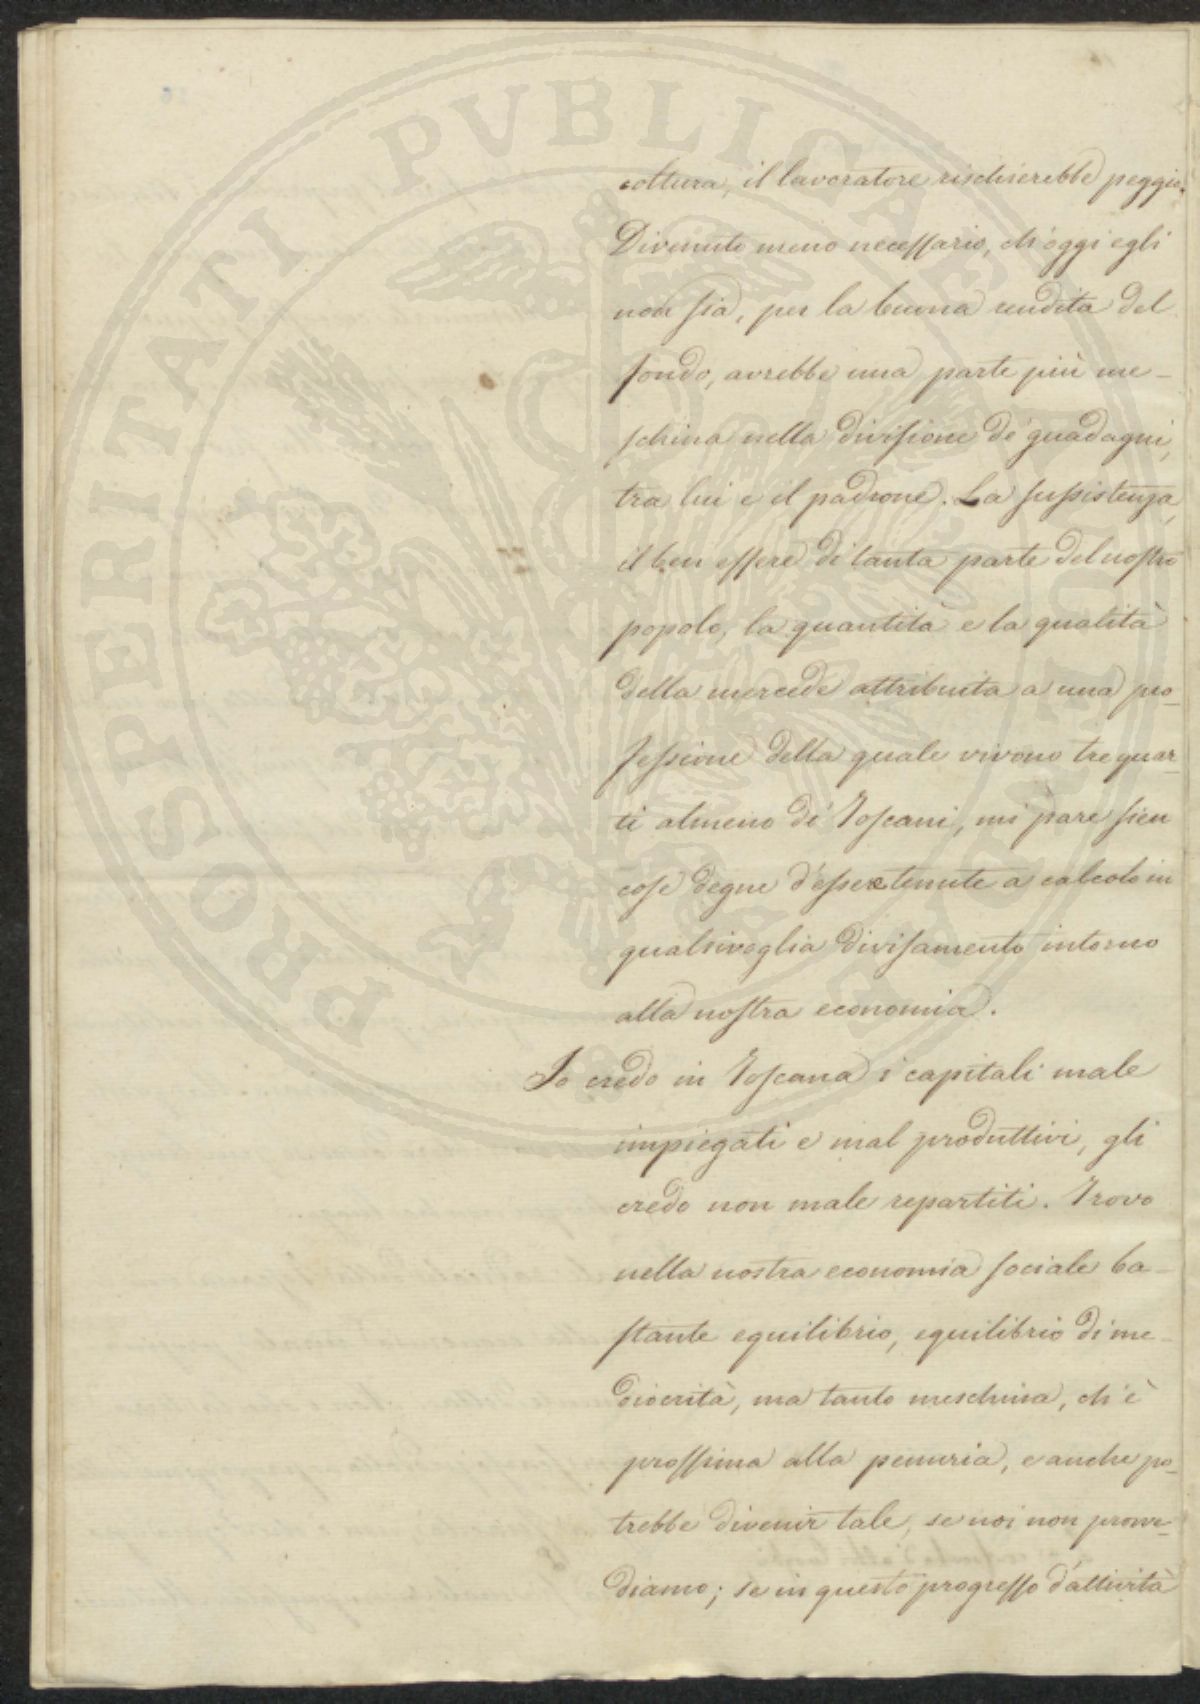 coltura, il lavoratore rischierebbe peggio.
Divenuto meno necessario, ch'oggi egli
non sia, per la buona rendita del
fondo, avrebbe una parte più me-
schina nella divisione de' guadagni,
tra lui e il padrone. La sussistenza,
il ben essere di tanta parte del nostro
popolo, la quantità e la qualità
della mercede attribuita a una pro-
fessione della quale vivono tre quar-
ti almeno de' Toscani, mi pare sien
cose degne d'essere tenute a calcolo in
qualsivoglia divisamento intorno
alla nostra economia.
Io credo in Toscana i capitali male
impiegati e mal produttivi, gli
credo non male repartiti. Trovo
nella nostra economia sociale ba-
stante equilibrio, equilibrio di me-
diocrità, ma tanto meschina, ch'è
prossima alla penuria, e anche po-
trebbe divenir tale, se noi non provve-
diamo; se in questo progresso d'attività
PROSPERITATI PVBLICAE AVGENDAE